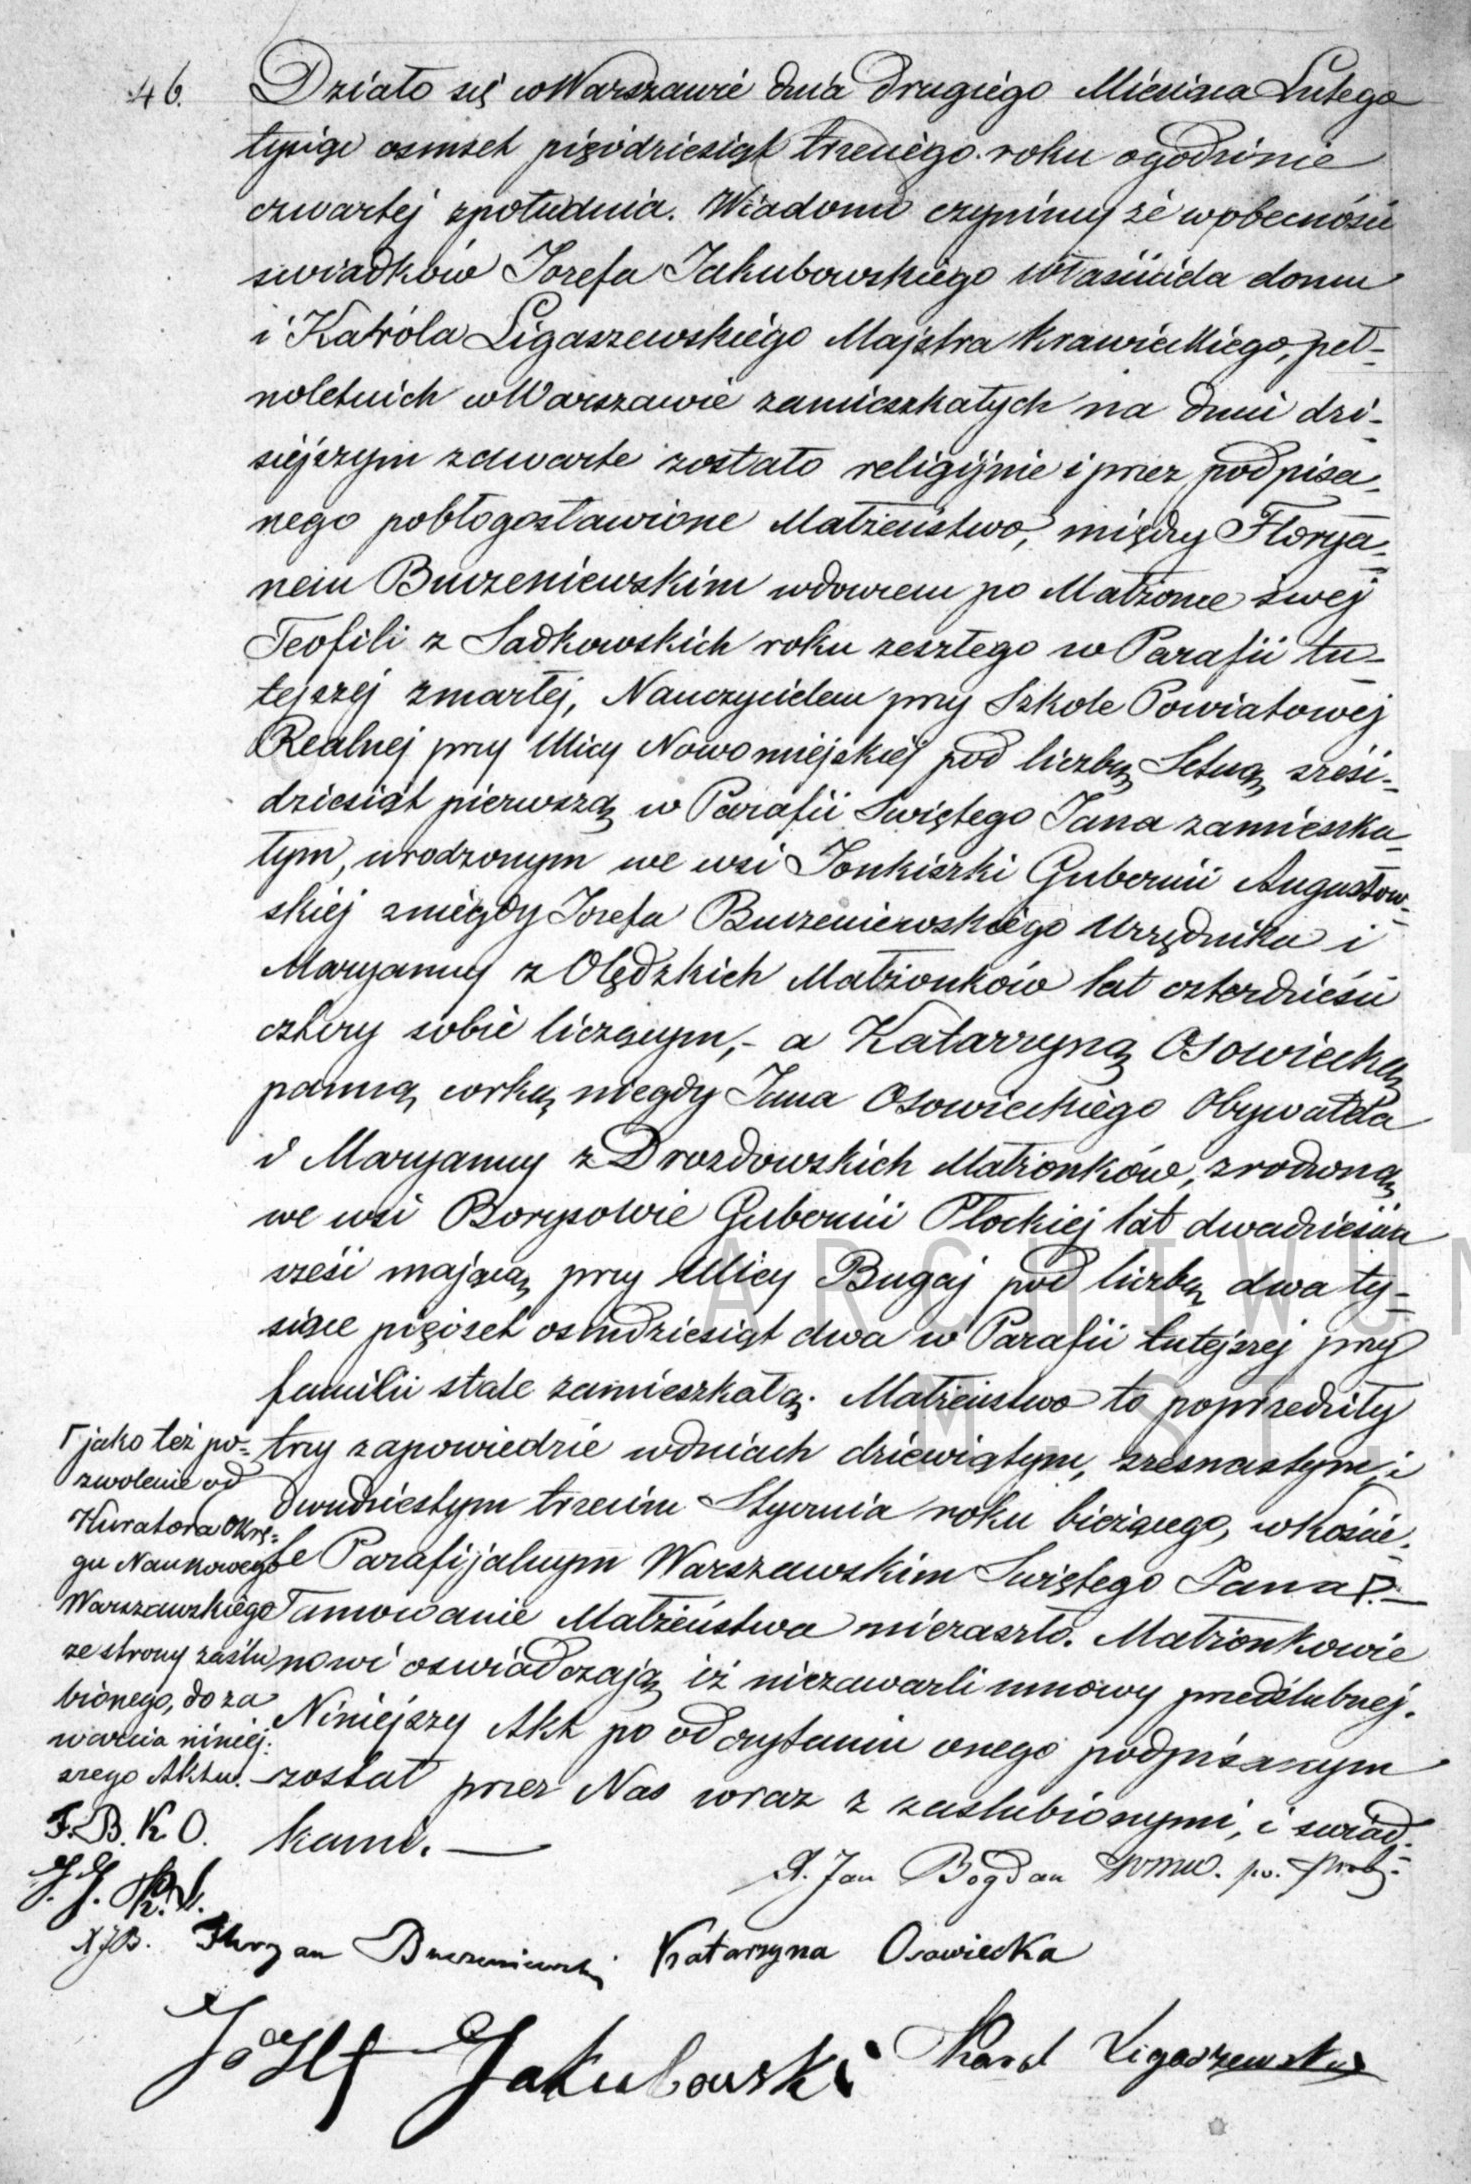 46.
Działo się w Warszawie dnia Drugiego Miesiąca Lutego
tysiąc osmset pięćdziesiąt trzeciego roku o godzinie
czwartej z południa. Wiadomo czynimy że w obecności
swiadków Jozefa Jakubowskiego właściciela domu
i Karóla Ligaszewskiego Majstra Krawieckiego, peł-
noletnich w Warszawie zamieszkałych na dniu dzi-
siejszym zawarte zostało religijnie i przez podpisa-
nego pobłogosławione Małżeństwo, między Florya-
nem Buczeniewskim wdowcem po Małżonce swej
Teofili z Sadkowskich roku zeszłego w Parafii tu-
tejszej zmarłej, Nauczycielem przy Szkole Powiatowej
Realnej przy Ulicy Nowomiejskiej pod liczbą Setną sześć-
dziesiąt pierwszą w Parafii Swiętego Jana zamieszka-
łym, urodzonym we wsi Jonkiszki Gubernii Augustow-
skiej z niegdy Jozefa Buczeniewskiego Urzędnika i
Maryanny z Olędzkich Małżonków lat czterdzieści
cztery sobie liczącym,- a Katarzyną Osowiecką
panną córką niegdy Jana Osowieckiego Obywatela
i Maryanny z Drozdowskich Małżonków, zrodzoną
we wsi Borysowie Gubernii Płockiej lat dwadzieścia
sześć mającą przy Ulicy Bugaj pod liczbą dwa ty-
siące pięćset osmdziesiąt dwa w Parafii tutejszej przy
familii stale zamieszkałą. Małżeństwo to poprzedziły
trzy zapowiedzie w dniach dziewiątym, szesnastym i
dwudziestym trzecim Stycznia roku bieżącego, w Koście-
le Parafijalnym Warszawskim Swiętego Jana Γ.—
Tamowanie Małżeństwa niezaszło. Małżonkowie
nowi oswiadczają iż niezawarli umowy przedślubnej.
Niniejszy Akt po odczytaniu onego podpisanym
został przez Nas wraz z zaslubionymi, i swiad-
kami. —
Γ jako też po-
zwolenie od
Kuratora Okrę-
gu Naukowego
Warszawskiego
ze strony zaślu
bionego, do za
warcia niniej-
szego Aktu.
F. B. K. O.
J. J. K. L.
X J B.
X. Jan Bogdan
Floryan Buczeniewski Katarzyna Osowiecka
Józef Jakubowski Karol Ligaszewski
ARCHIWUM
M. ST.